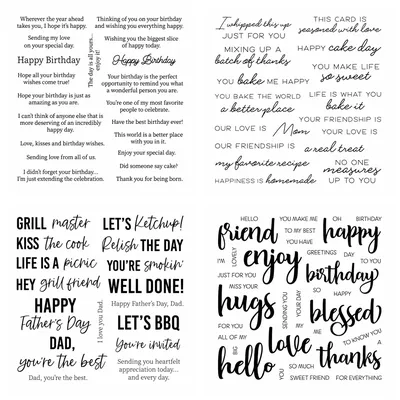 Wherever the year ahead
takes you, I hope it's happy.
Sending my love
on your special day.
Happy Birthday
Hope all your birthday
wishes come true!
Hope your birthday is just as
amazing as you are.
I can't think of anyone else that is
more deserving of an incredibly
happy day.
Love, kisses and birthday wishes.
Sending love from all of us.
I didn't forget your birthday...
I'm just extending the celebration.
The day is all yours...
enjoy it!
Thinking of you on your birthday
and wishing you everything happy.
Wishing you the biggest slice
of happy today.
Happy Birthday
Your birthday is the perfect
opportunity to remind you what
a wonderful person you are.
You're one of my most favorite
people to celebrate.
Have the best birthday ever!
This world is a better place
with you in it.
Enjoy your special day.
Did someone say cake?
Thank you for being born.
I whipped this up
JUST FOR YOU
MIXING UP A
batch of thanks
YOU bake ME HAPPY
YOU BAKE THE WORLD
a better place
OUR LOVE IS
Mom
my favorite recipe
HAPPINESS IS homemade
THIS CARD IS
seasoned with love
HAPPY cake day
YOU MAKE LIFE
so sweet
LIFE IS WHAT YOU
bake it
YOUR FRIENDSHIP IS
YOUR LOVE IS
OUR FRIENDSHIP IS
a real treat
NO ONE
measures
UP TO YOU
GRILL master
KISS the cook
LIFE IS A picnic
HEY grill friend
HAPPY
Father's Day
DAD,
you're the best
Dad, you're the best.
I love you Dad.
LET'S Ketchup!
Relish THE DAY
YOU'RE smokin'
WELL DONE!
Happy Father's Day, Dad.
LET'S BBQ
You're invited
Sending you heartfelt
appreciation today...
and every day.
HELLO
YOU MAKE ME
OH
BIRTHDAY
friend
TO MY BEST
happy
YOU HAVE
I'M
LOVELY
enjoy
GREETINGS
DAY
TO YOU
JUST FOR YOU
birthday
MISS YOUR
SO
HAPPY
hugs
SENDING YOU
DAY
blessed
FOR YOU
MY
ME
ALL OF MY
love
TO KNOW YOU
BIG
A
hello
thanks
YOU
SO MUCH
SWEET FRIEND
FOR EVERYTHING